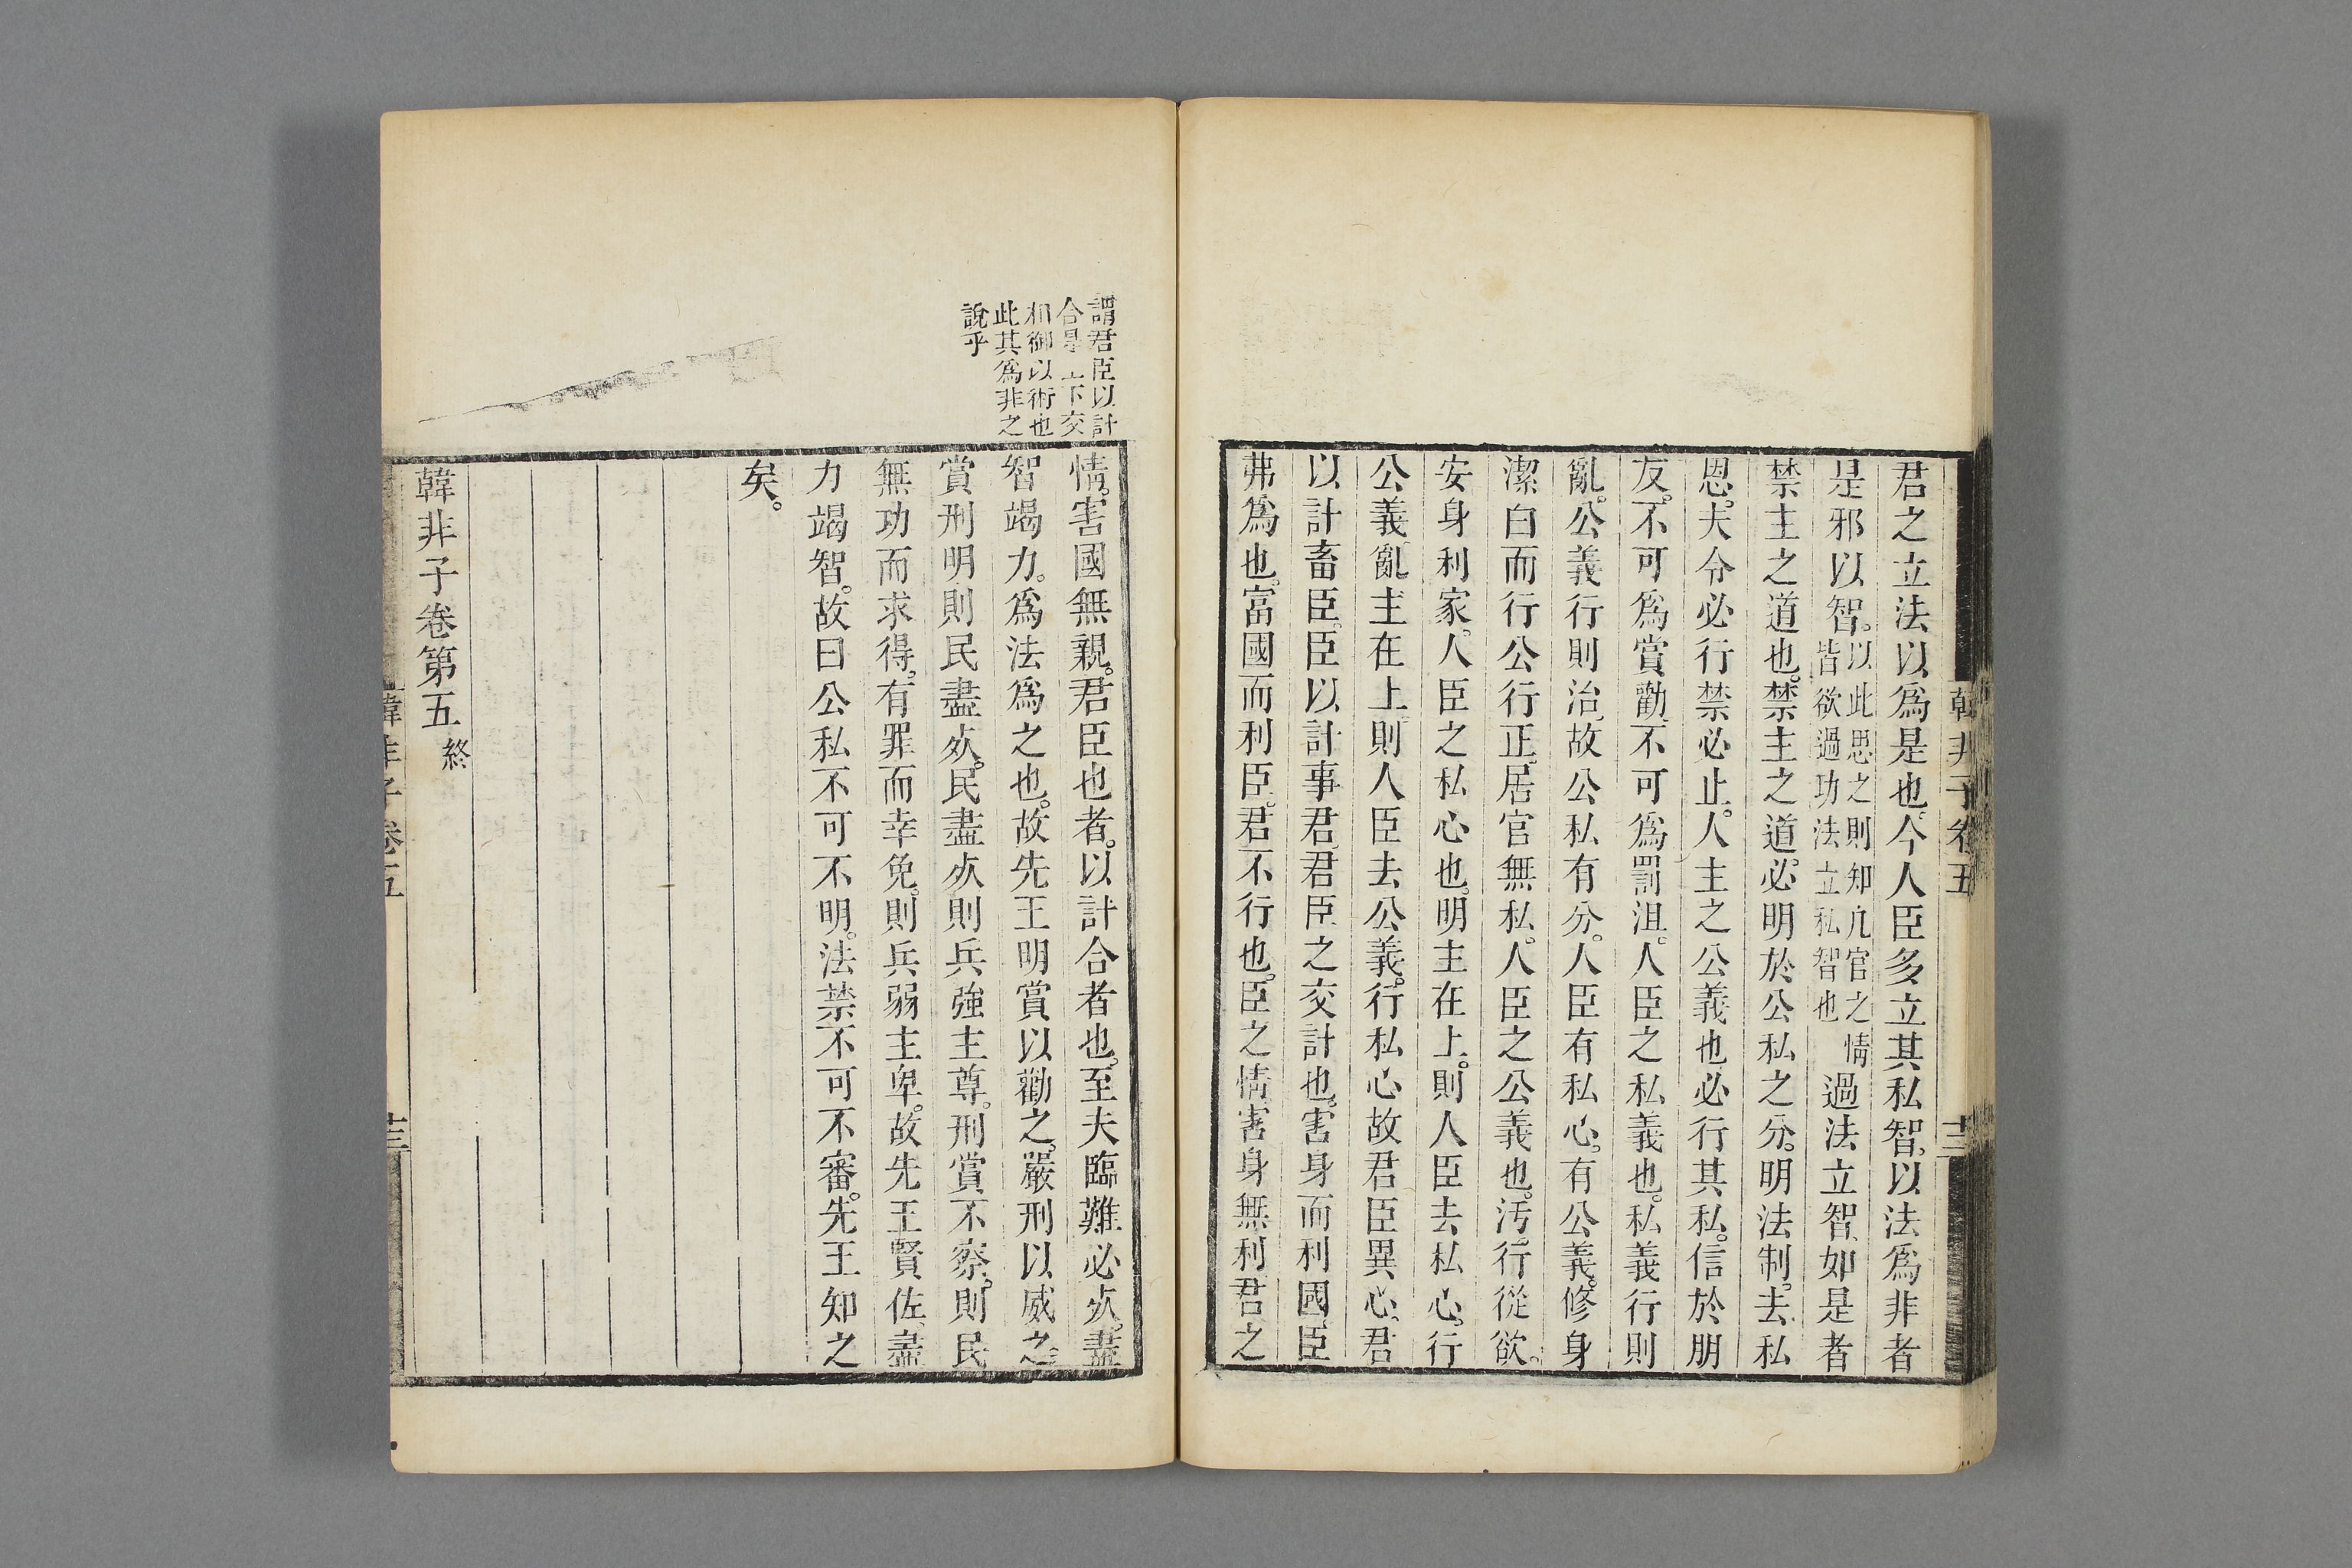 君之立法以爲是也。今人臣多立其私智。以法爲非者
是邪以智。以此思之則知凢官之情
皆欲過功法立私智也
過法立智、如是者
禁主之道也。禁主之道。必明於公私之分。明法制。去私
恩。夫令必行禁必止。人主之公義也必行其私。信於朋
友。不可爲賞勸、不可爲罰沮。人臣之私義也。私義行則
亂。公義行則治、故公私有分。人臣有私心。有公義。修身
潔白而行公行正、居官無私。人臣之公義也。汚行從欲。
安身利家。人臣之私心也。明主在上。則人臣去私心。行
公義亂主在上、則人臣去公義。行私心故君臣異心。君
以計畜臣。臣以計事君、君臣之交計也。害身而利國、臣
弗爲也。富國而利臣。君不行也。臣之情害身無利君之
韓非子卷五
十二
謂君臣以計
合是上下交
相御以術也
此其爲非之
說乎
情。害國無親。君臣也者。以計合者也。至夫臨難必㱙。盡
智竭力。爲法爲之也。故先王明賞以勸之。嚴刑以威之
賞刑明則民盡㱙。民盡㱙則兵強主尊。刑賞不察。則民
無功而求得。有罪而幸免。則兵弱主卑。故先王賢佐、盡
力竭智。故曰公私不可不明。法禁不可不審。先王知之
矣。
韓非子卷第五 終
韓非子卷五
十三